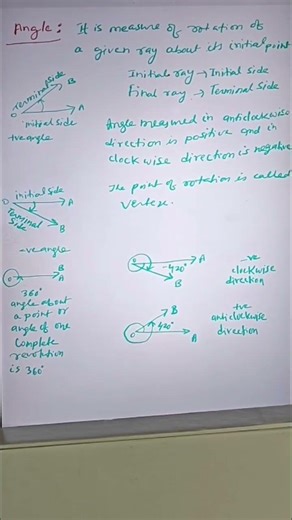 Angle: It is measure of rotation of
a given ray about its initial point
Initial ray → Initial side
Final ray → Terminal side
Terminal side
B
O
A
initial side
+ve angle
Angle measured in anticlockwise
direction is positive and in
clockwise direction is negative
The point of rotation is called
vertex.
O initial side
A
Terminal
side
B
-ve angle
B
O
A
360°
angle about
a point or
angle of one
complete
revolution
is 360°
O
A
-420°
B
-ve
clockwise
direction
B
420°
O
A
+ve
anticlockwise
direction